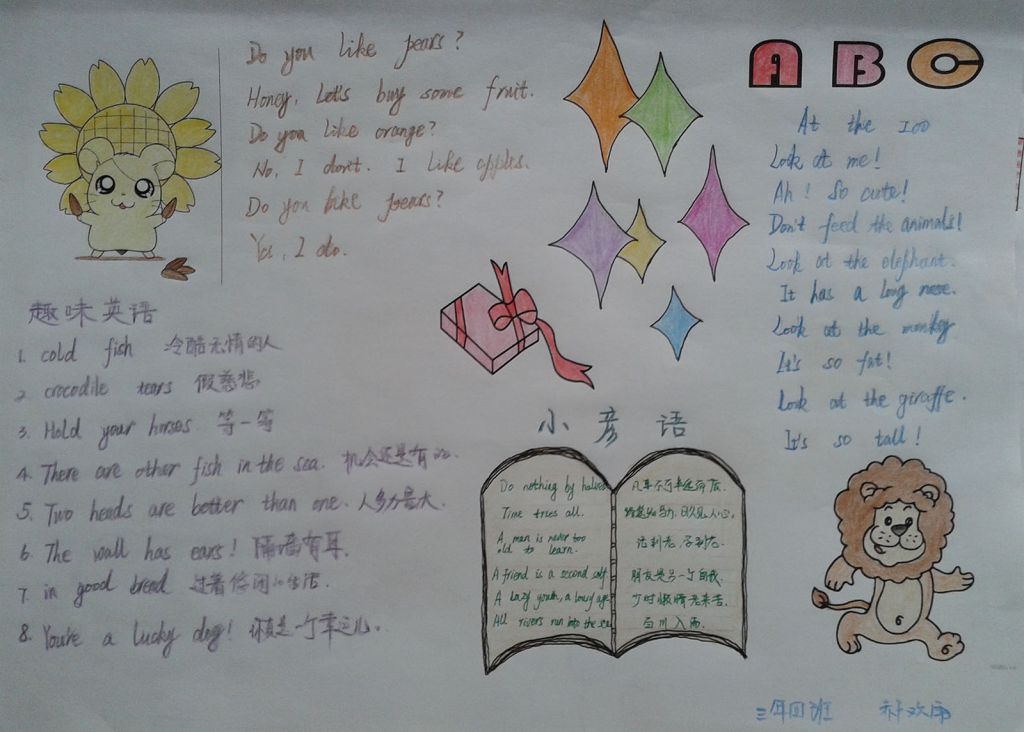 Do you like pears?
Honey, Let's buy some fruit.
Do you like orange?
No, I don't. I like apples.
Do you like pears?
Yes, I do.
A B C
At the zoo
Look at me!
Ah! So cute!
Don't feed the animals!
Look at the elephant.
It has a long nose.
Look at the monkey
It's so fat!
Look at the giraffe.
It's so tall!
趣味英语
1. cold fish 冷酷无情的人
2 crocodile tears 假慈悲
3. Hold your horses 等一等
4. There are other fish in the sea. 机会还是有的.
5. Two heads are better than one. 人多力量大.
6. The wall has ears! 隔墙有耳.
7. in good bread 过着悠闲的生活.
8. You're a lucky dog! 你真是一个幸运儿.
小彦语
Do nothing by halves
Time tries all.
A man is never too
old to learn.
A friend is a second self
A lazy youth, a lousy age
All rivers run into the sea
凡事不可半途而废.
路遥知马力,日久见人心.
活到老,学到老.
朋友是另一个自我.
少时懒惰老来苦.
百川入海.
6
6
三年四班